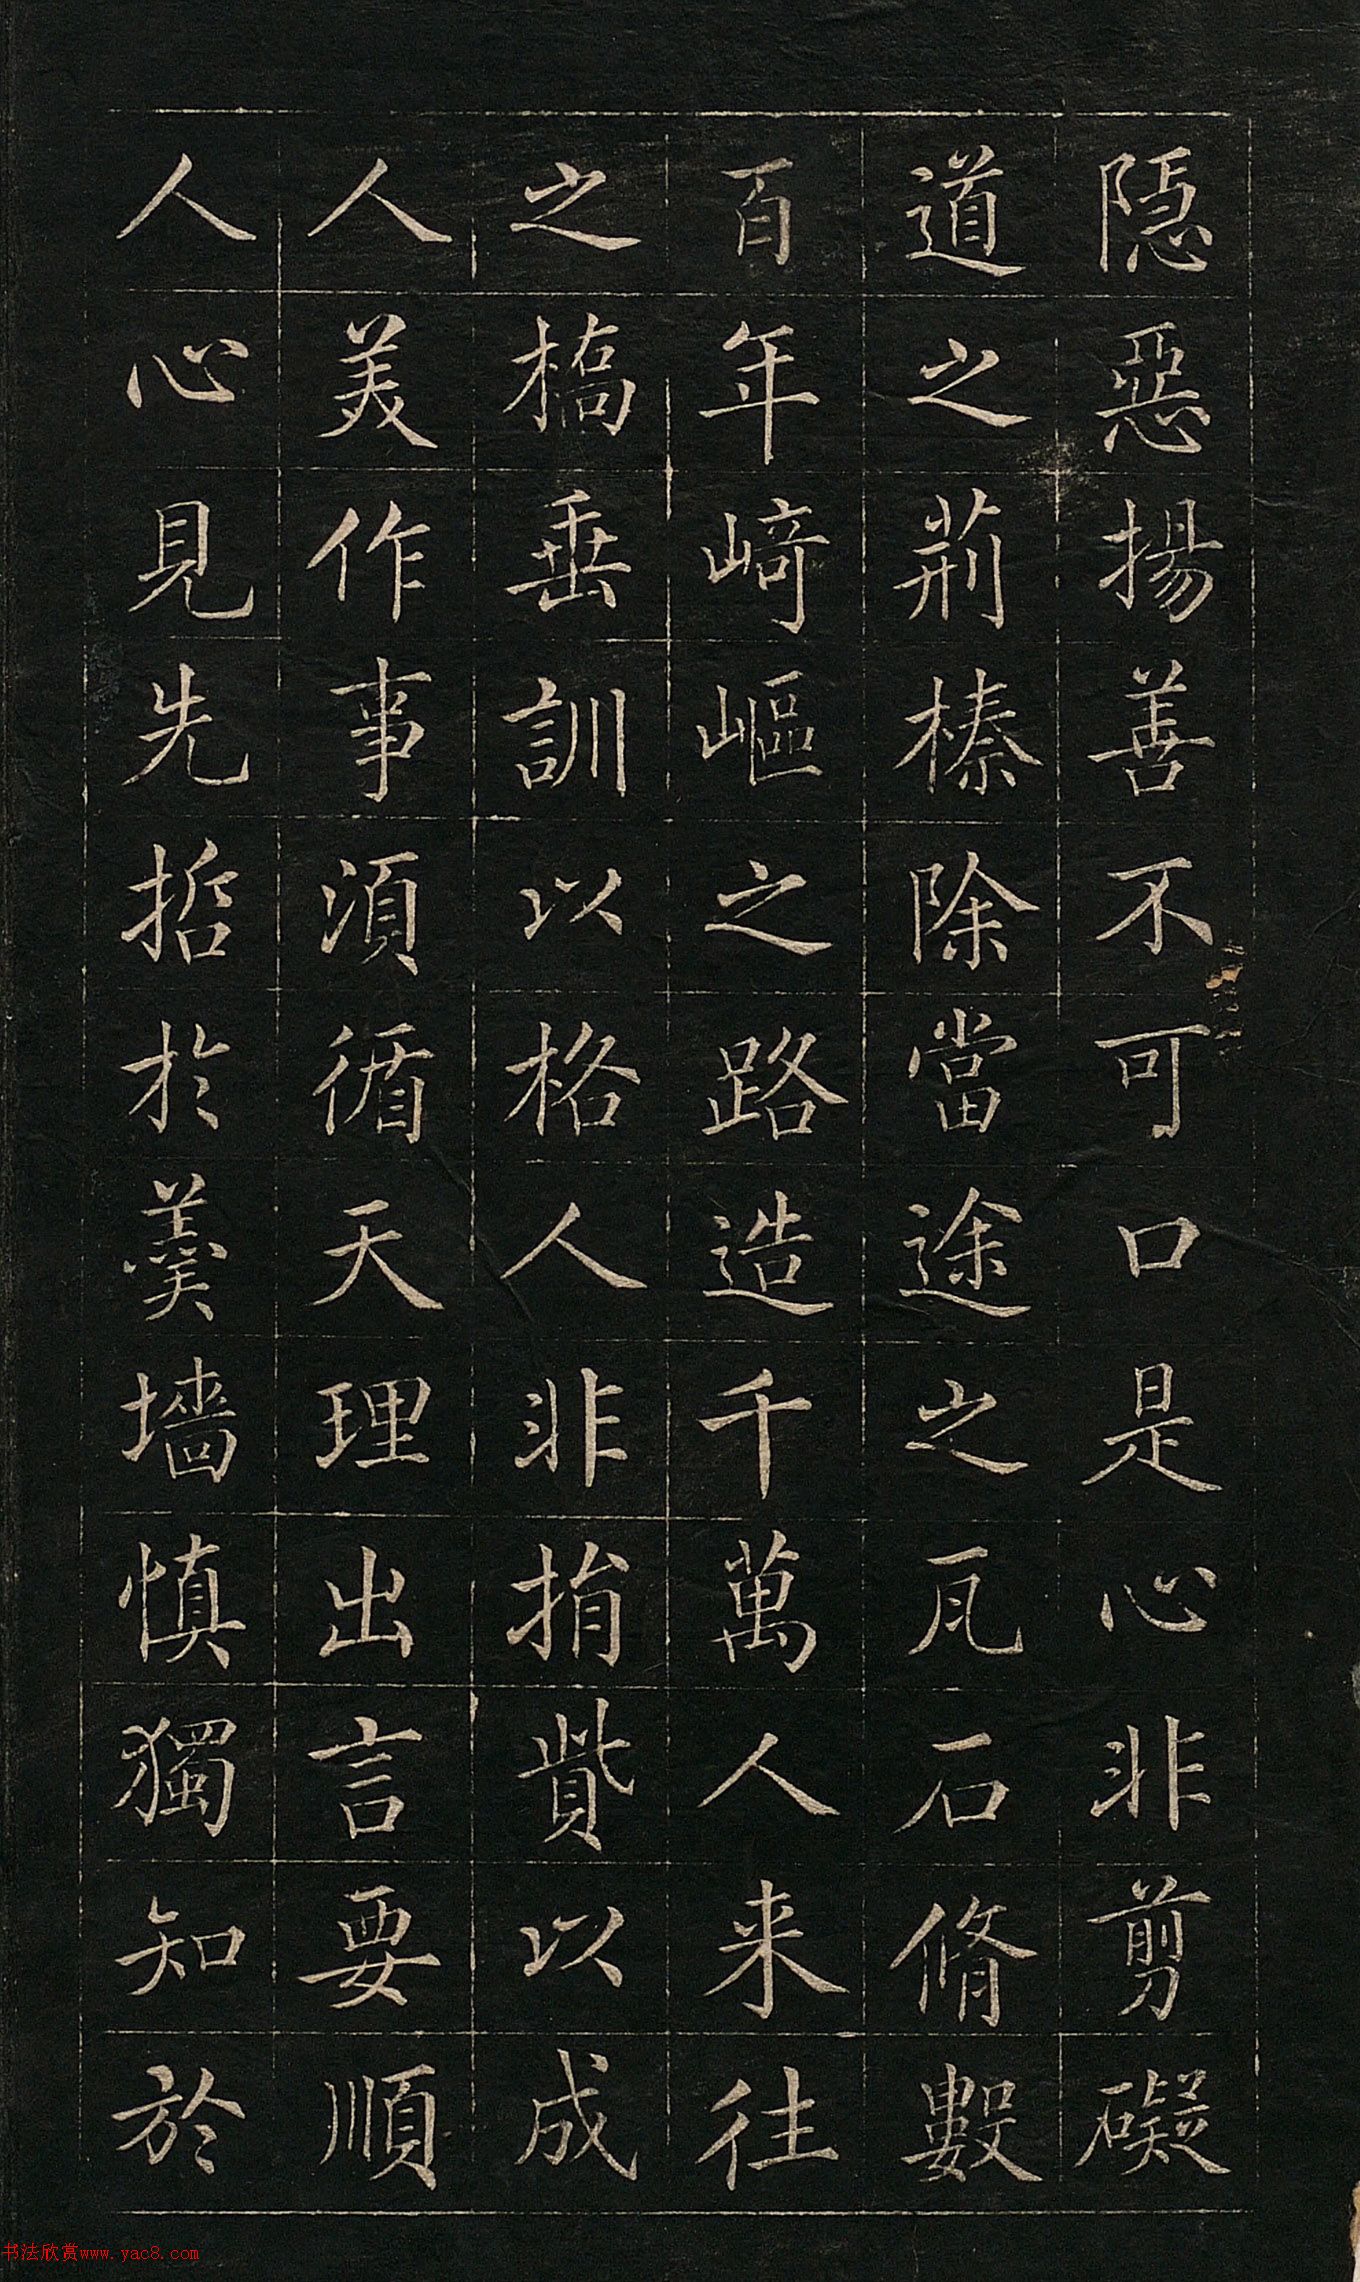 隱惡揚善不可口是心非剪礙
道之荊榛除當途之瓦石脩數
百年崎嶇之路造千萬人来往
之橋垂訓以格人非捐貲以成
人美作事須循天理出言要順
人心見先哲於羹墻慎獨知於
书法欣赏www.yac8.com